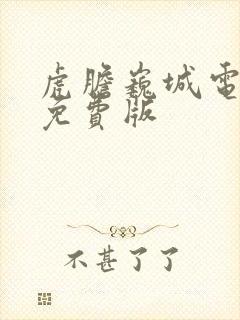 虎膽巍城電
免費版
不甚了了